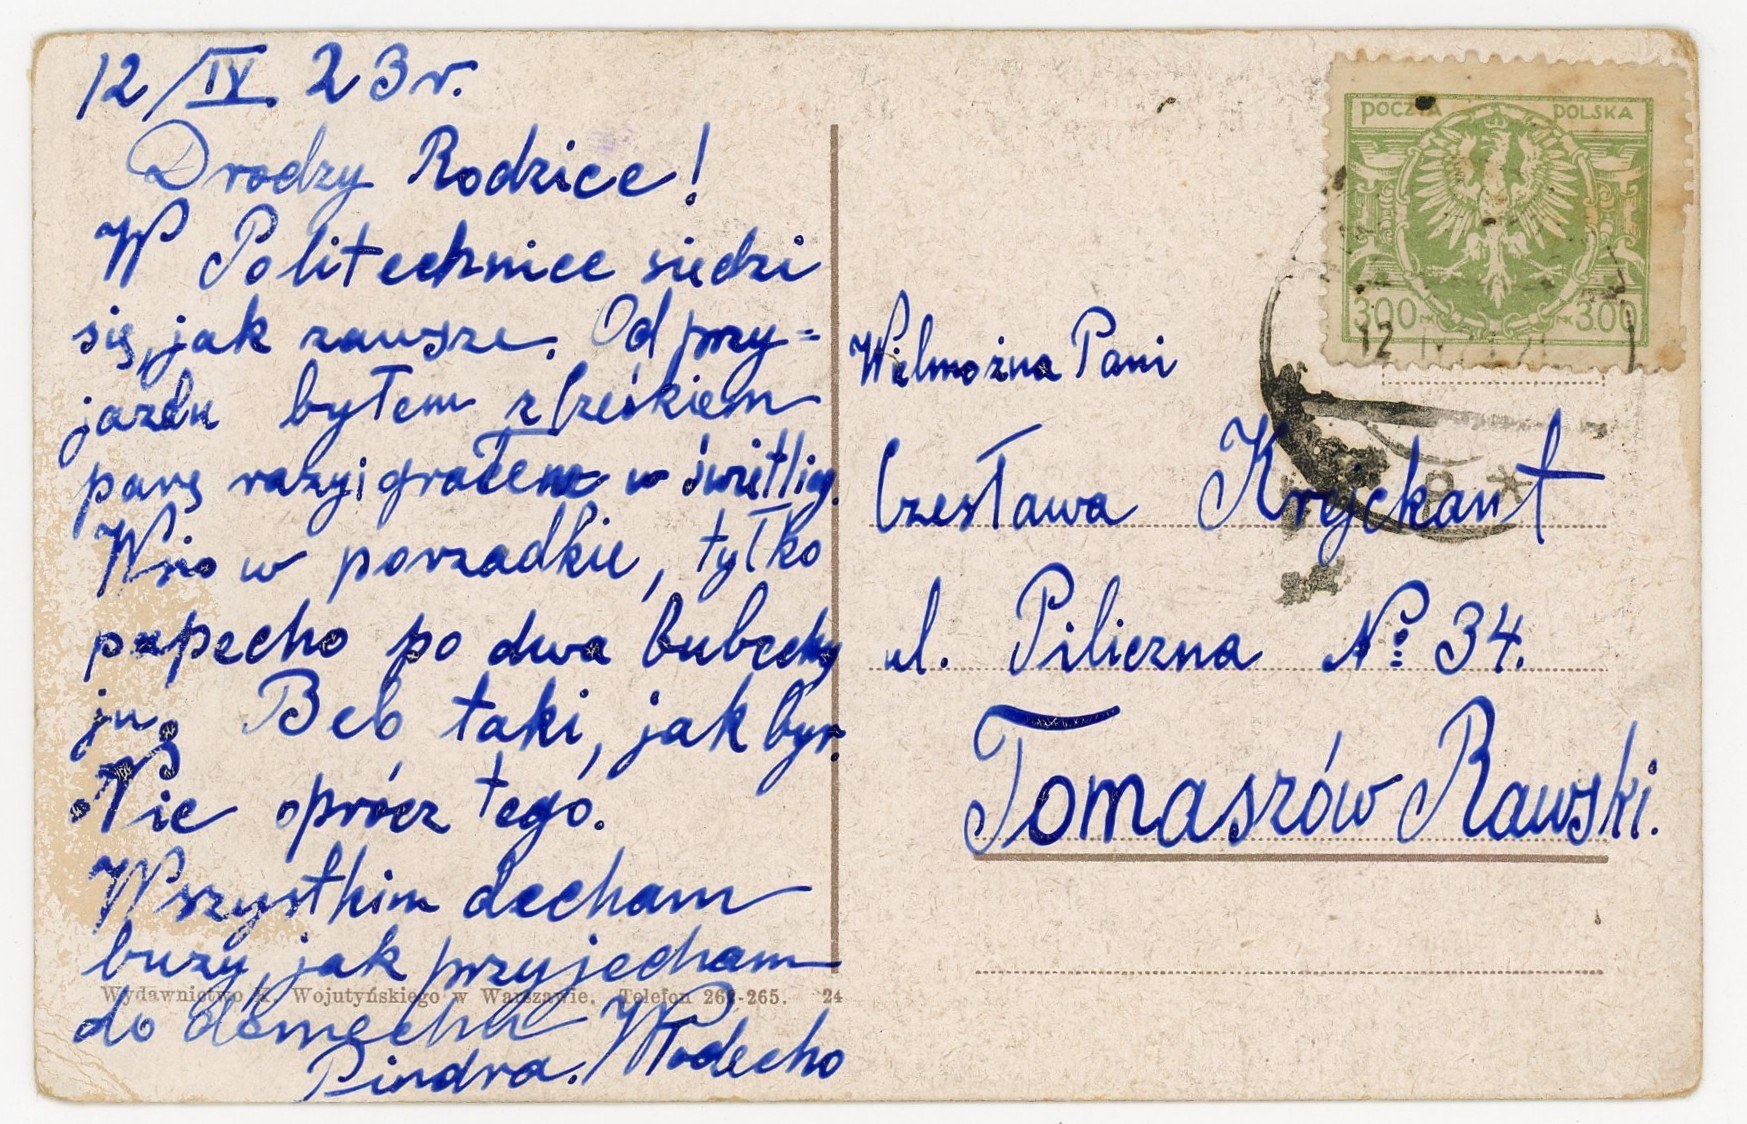 12/IV. 23 r.
Drodzy Rodzice!
W Politechnice siedzi
się, jak zawsze. Od przy=
jazdu byłem z
parę razy i grałem w świetlicy.
Wsio w porzadkie, tylko
papecho po dwa
ju. Beb taki, jak był.
Nic oprócz tego.
Wszystkim decham
buzy, jak przyjecham
do domechu
Pindra. / Wodecho
Wydawnictwo K. Wojutyńskiego w Warszawie. Telefon 26 -265. 24
POCZTA POLSKA
300 MK MK 300
12
Wielmożna Pani
Czesława Kryckant
ul. Piliczna No 34.
Tomaszów Rawski.